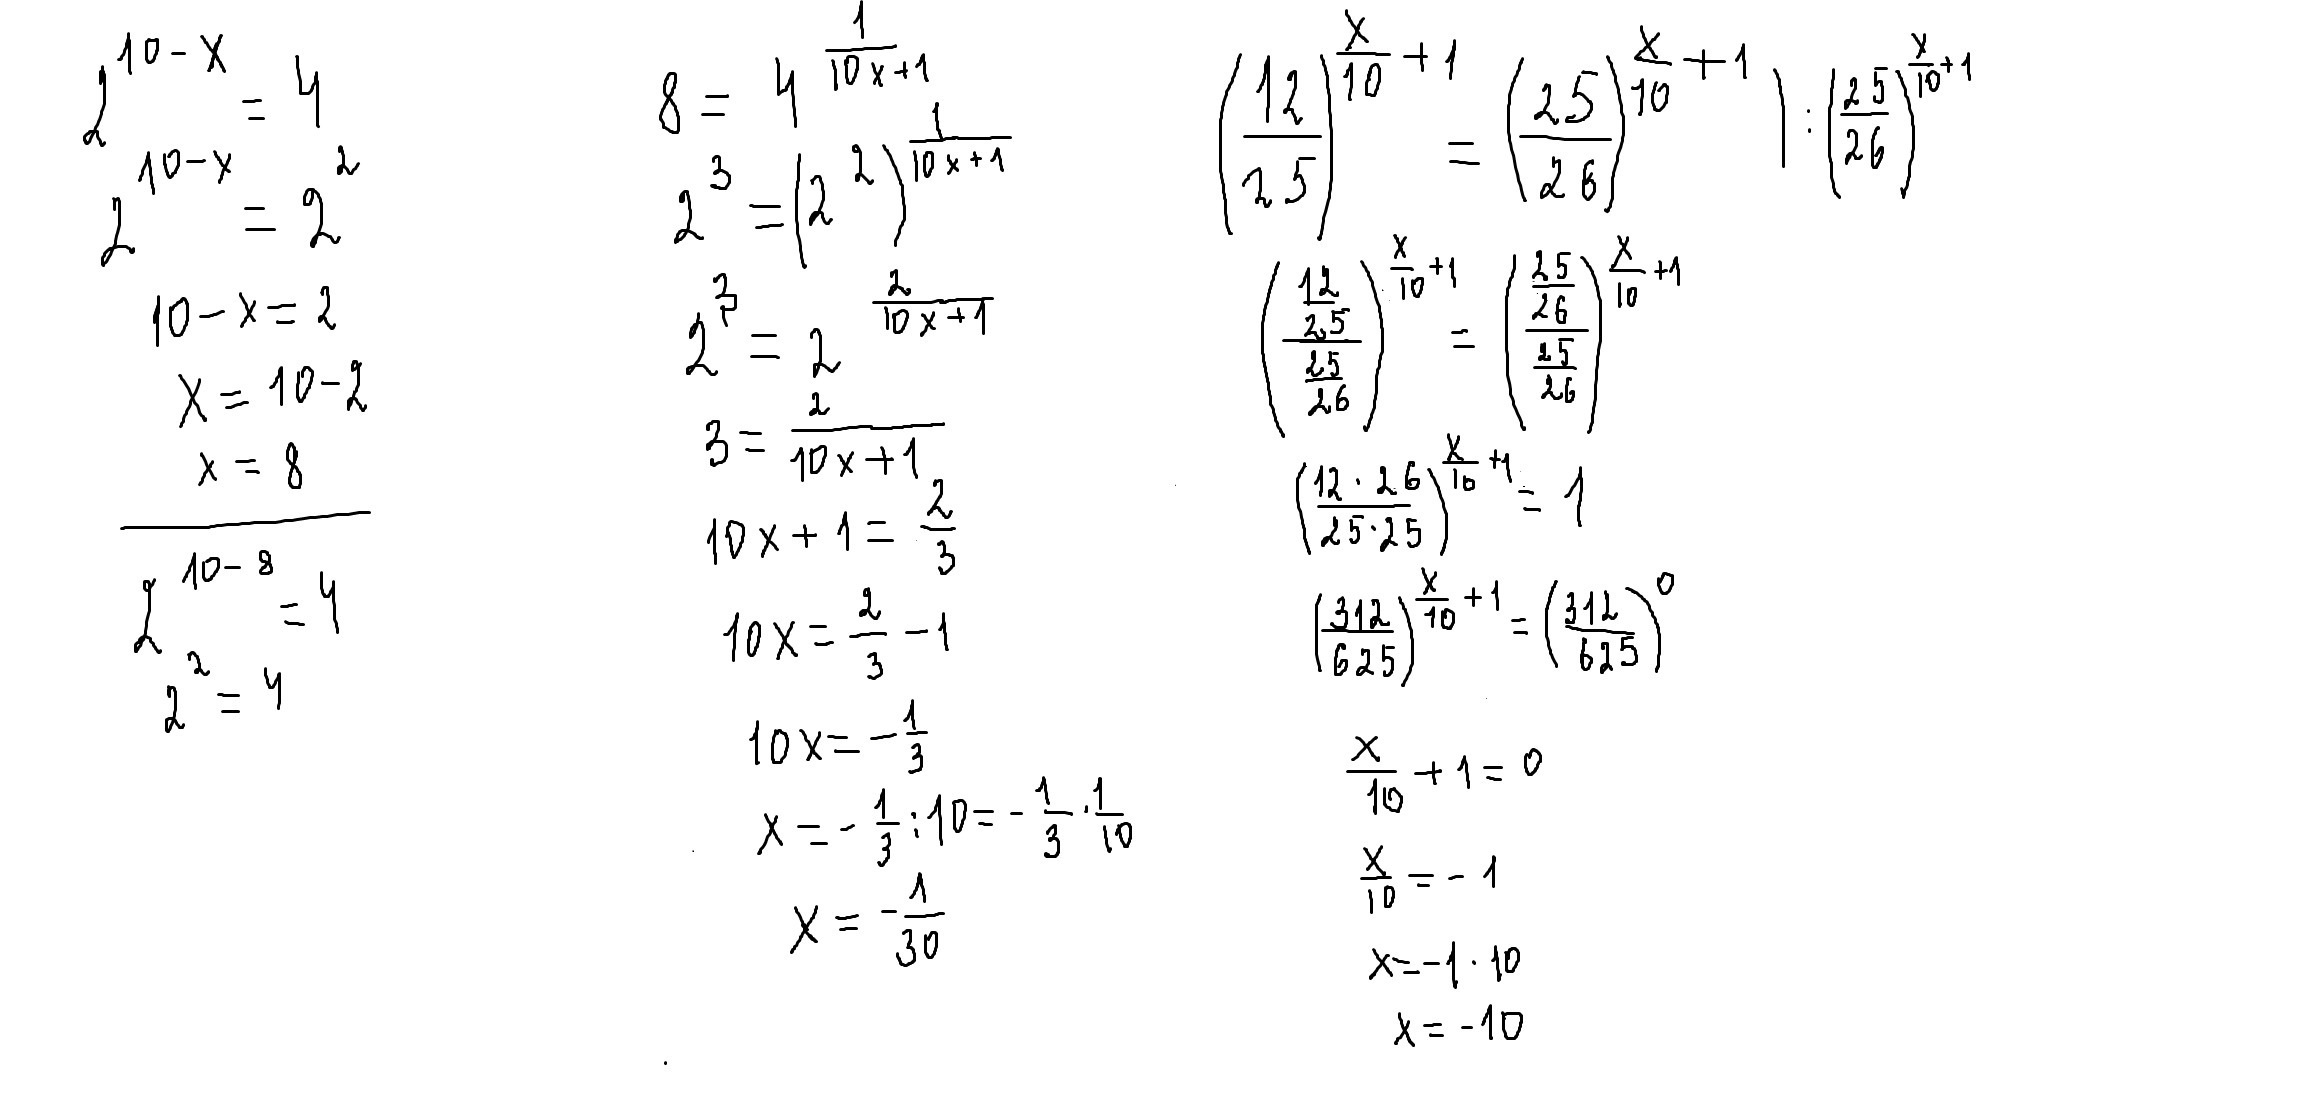 2^(10-x) = 4
2^(10-x) = 2^2
10-x = 2
x = 10-2
x = 8
2^(10-8) = 4
2^2 = 4
8 = 4^(1/(10x+1))
2^3 = (2^2)^(1/(10x+1))
2^3 = 2^(2/(10x+1))
3 = 2/(10x+1)
10x+1 = 2/3
10x = 2/3 - 1
10x = -1/3
x = -1/3 : 10 = -1/3 · 1/10
x = -1/30
(12/25)^(x/10+1) = (25/26)^(x/10+1) | : (25/26)^(x/10+1)
((12/25)/(25/26))^(x/10+1) = ((25/26)/(25/26))^(x/10+1)
((12·26)/(25·25))^(x/10+1) = 1
(312/625)^(x/10+1) = (312/625)^0
x/10 + 1 = 0
x/10 = -1
x = -1·10
x = -10